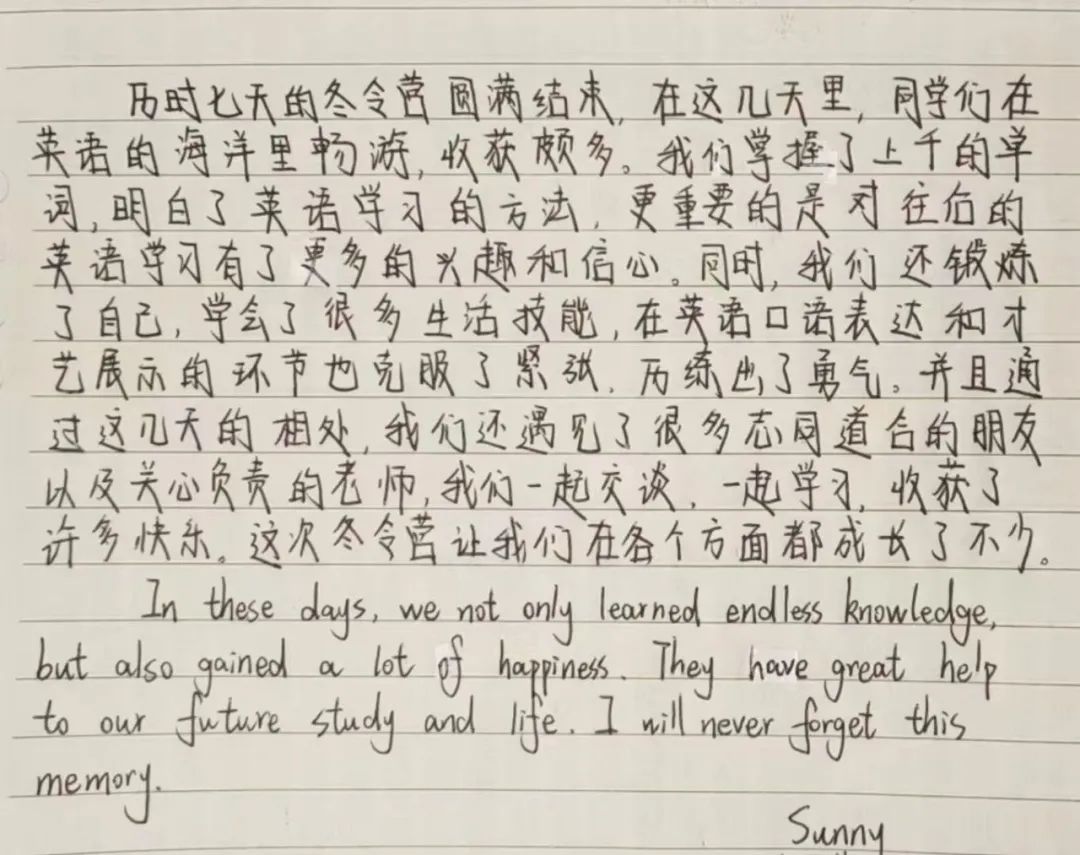 历时七天的冬令营圆满结束，在这几天里，同学们在
英语的海洋里畅游，收获颇多。我们掌握了上千的单
词，明白了英语学习的方法，更重要的是对往后的
英语学习有了更多的兴趣和信心。同时，我们还锻炼
了自己，学会了很多生活技能，在英语口语表达和才
艺展示的环节也克服了紧张，历练出了勇气。并且通
过这几天的相处，我们还遇见了很多志同道合的朋友
以及关心负责的老师，我们一起交谈，一起学习，收获了
许多快乐。这次冬令营让我们在各个方面都成长了不少。
In these days, we not only learned endless knowledge,
but also gained a lot of happiness. They have great help
to our future study and life. I will never forget this
memory.
Sunny